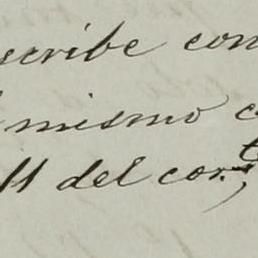 scribe con
mismo c
11 del cor.te,